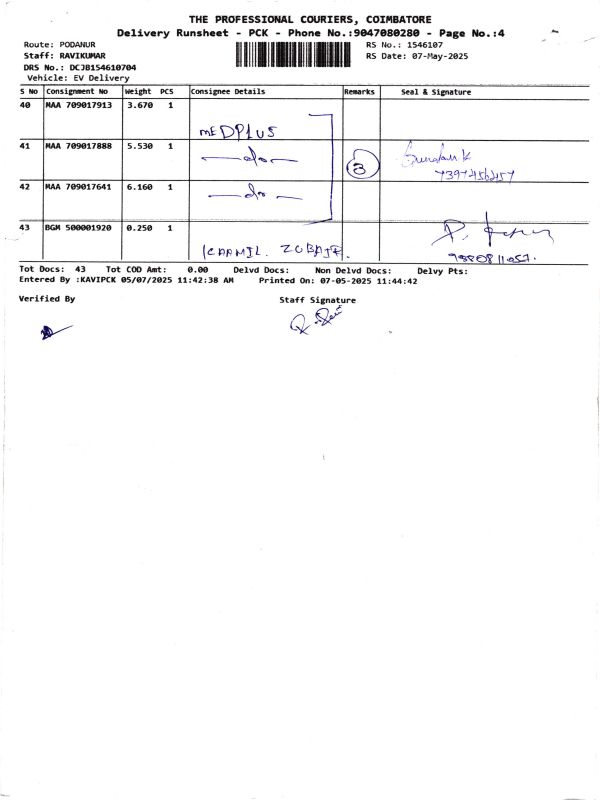 THE PROFESSIONAL COURIERS, COIMBATORE
Delivery Runsheet - PCK - Phone No.:9047080280 - Page No.:4
Route: PODANUR RS No.: 1546107
Staff: RAVIKUMAR RS Date: 07-May-2025
DRS No.: DCJB154610704
Vehicle: EV Delivery
S No Consignment No Weight PCS Consignee Details Remarks Seal & Signature
40 MAA 709017913 3.670 1
MEDPLUS
41 MAA 709017888 5.530 1
—do— 3
7397456457
42 MAA 709017641 6.160 1
—do—
43 BGM 500001920 0.250 1
Tot Docs: 43 Tot COD Amt: 0.00 Delvd Docs: Non Delvd Docs: Delvy Pts:
Entered By :KAVIPCK 05/07/2025 11:42:38 AM Printed On: 07-05-2025 11:44:42
Verified By Staff Signature